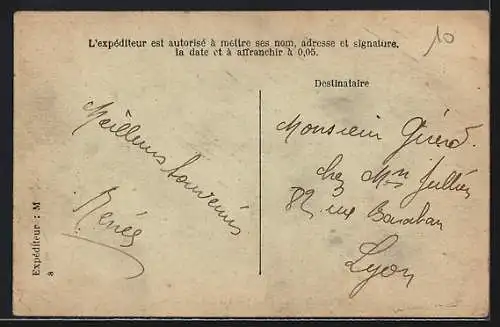 L'expéditeur est autorisé à mettre ses nom, adresse et signature,
la date et à affranchir à 0,05.
10
Destinataire
Meilleurs souvenirs
Renée
Monsieur Girerd.
chez Mr Jullien
82 rue Baraban
Lyon
Expéditeur : M
8